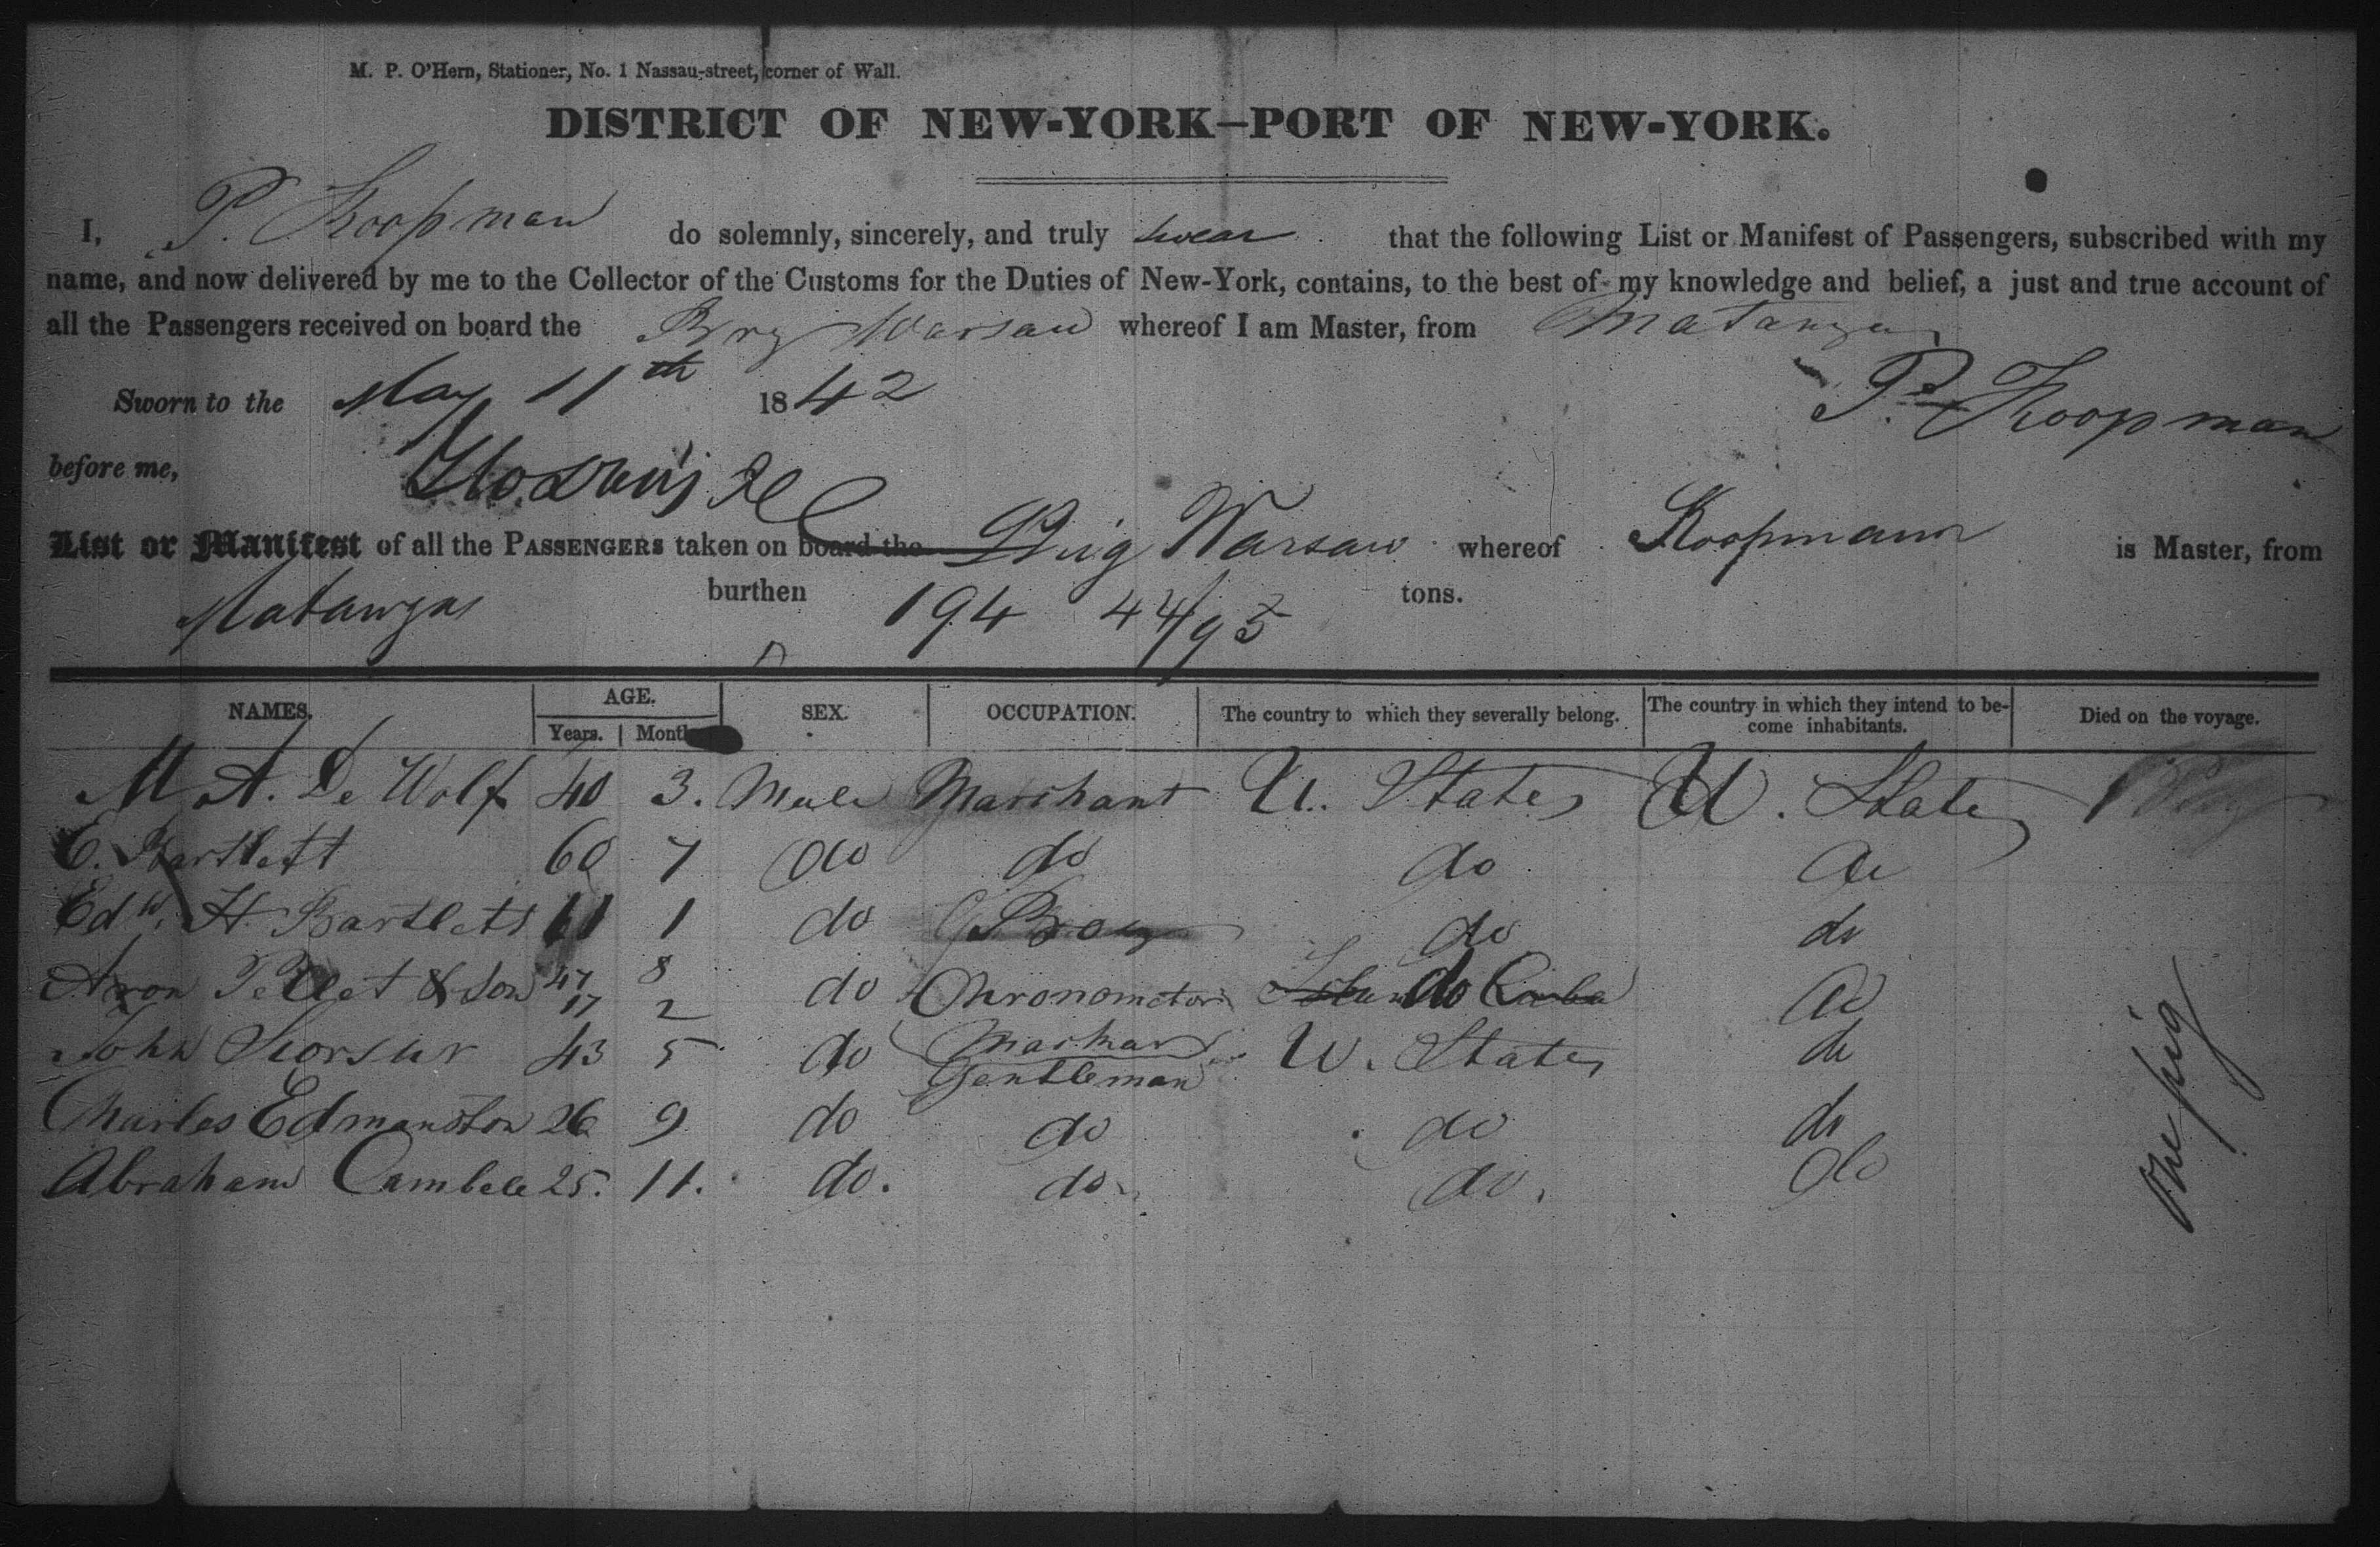 M. P. O'Hern, Stationer, No. 1 Nassau-street, corner of Wall.
DISTRICT OF NEW-YORK—PORT OF NEW-YORK.
I, P. Koopman do solemnly, sincerely, and truly swear that the following List or Manifest of Passengers, subscribed with my
name, and now delivered by me to the Collector of the Customs for the Duties of New-York, contains, to the best of my knowledge and belief, a just and true account of
all the Passengers received on board the Brig Warsaw whereof I am Master, from Matanzas
Sworn to the May 11th 1842 P. Koopman
before me,
List or Manifest of all the PASSENGERS taken on board the Brig Warsaw whereof Koopmann is Master, from
Matanzas burthen 194 44/95 tons.
NAMES. AGE. SEX. OCCUPATION. The country to which they severally belong. The country in which they intend to be-
come inhabitants. Died on the voyage.
Years. Months
M. A. De Wolf 40 3. Male Marchant U. States U. States
E. Bartlett 60 7 do do do do
Edw. H. Bartlett 11 1 do Boy do do
Aron Pellet & Son 47 8 do Chronometer do Cuba do
17 2
John 43 5 do Gentleman U. States do
Charles Edmonston 26 9 do do do do
Abraham Cambele 25. 11. do. do. do. do
One pig